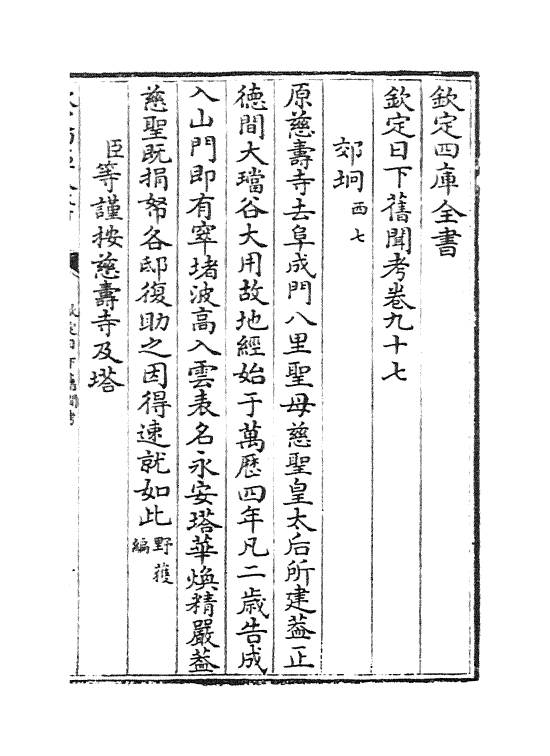 欽定四庫全書
欽定日下舊聞考卷九十七
郊坰西七
原慈壽寺去阜成門八里聖母慈聖皇太后所建葢正
徳間大璫谷大用故地經始于萬厯四年凡二歳告成
入山門即有窣堵波高入雲表名永安塔華煥精嚴葢
慈聖既捐帑各邸復助之因得速就如此野獲編
臣等謹按慈壽寺及塔